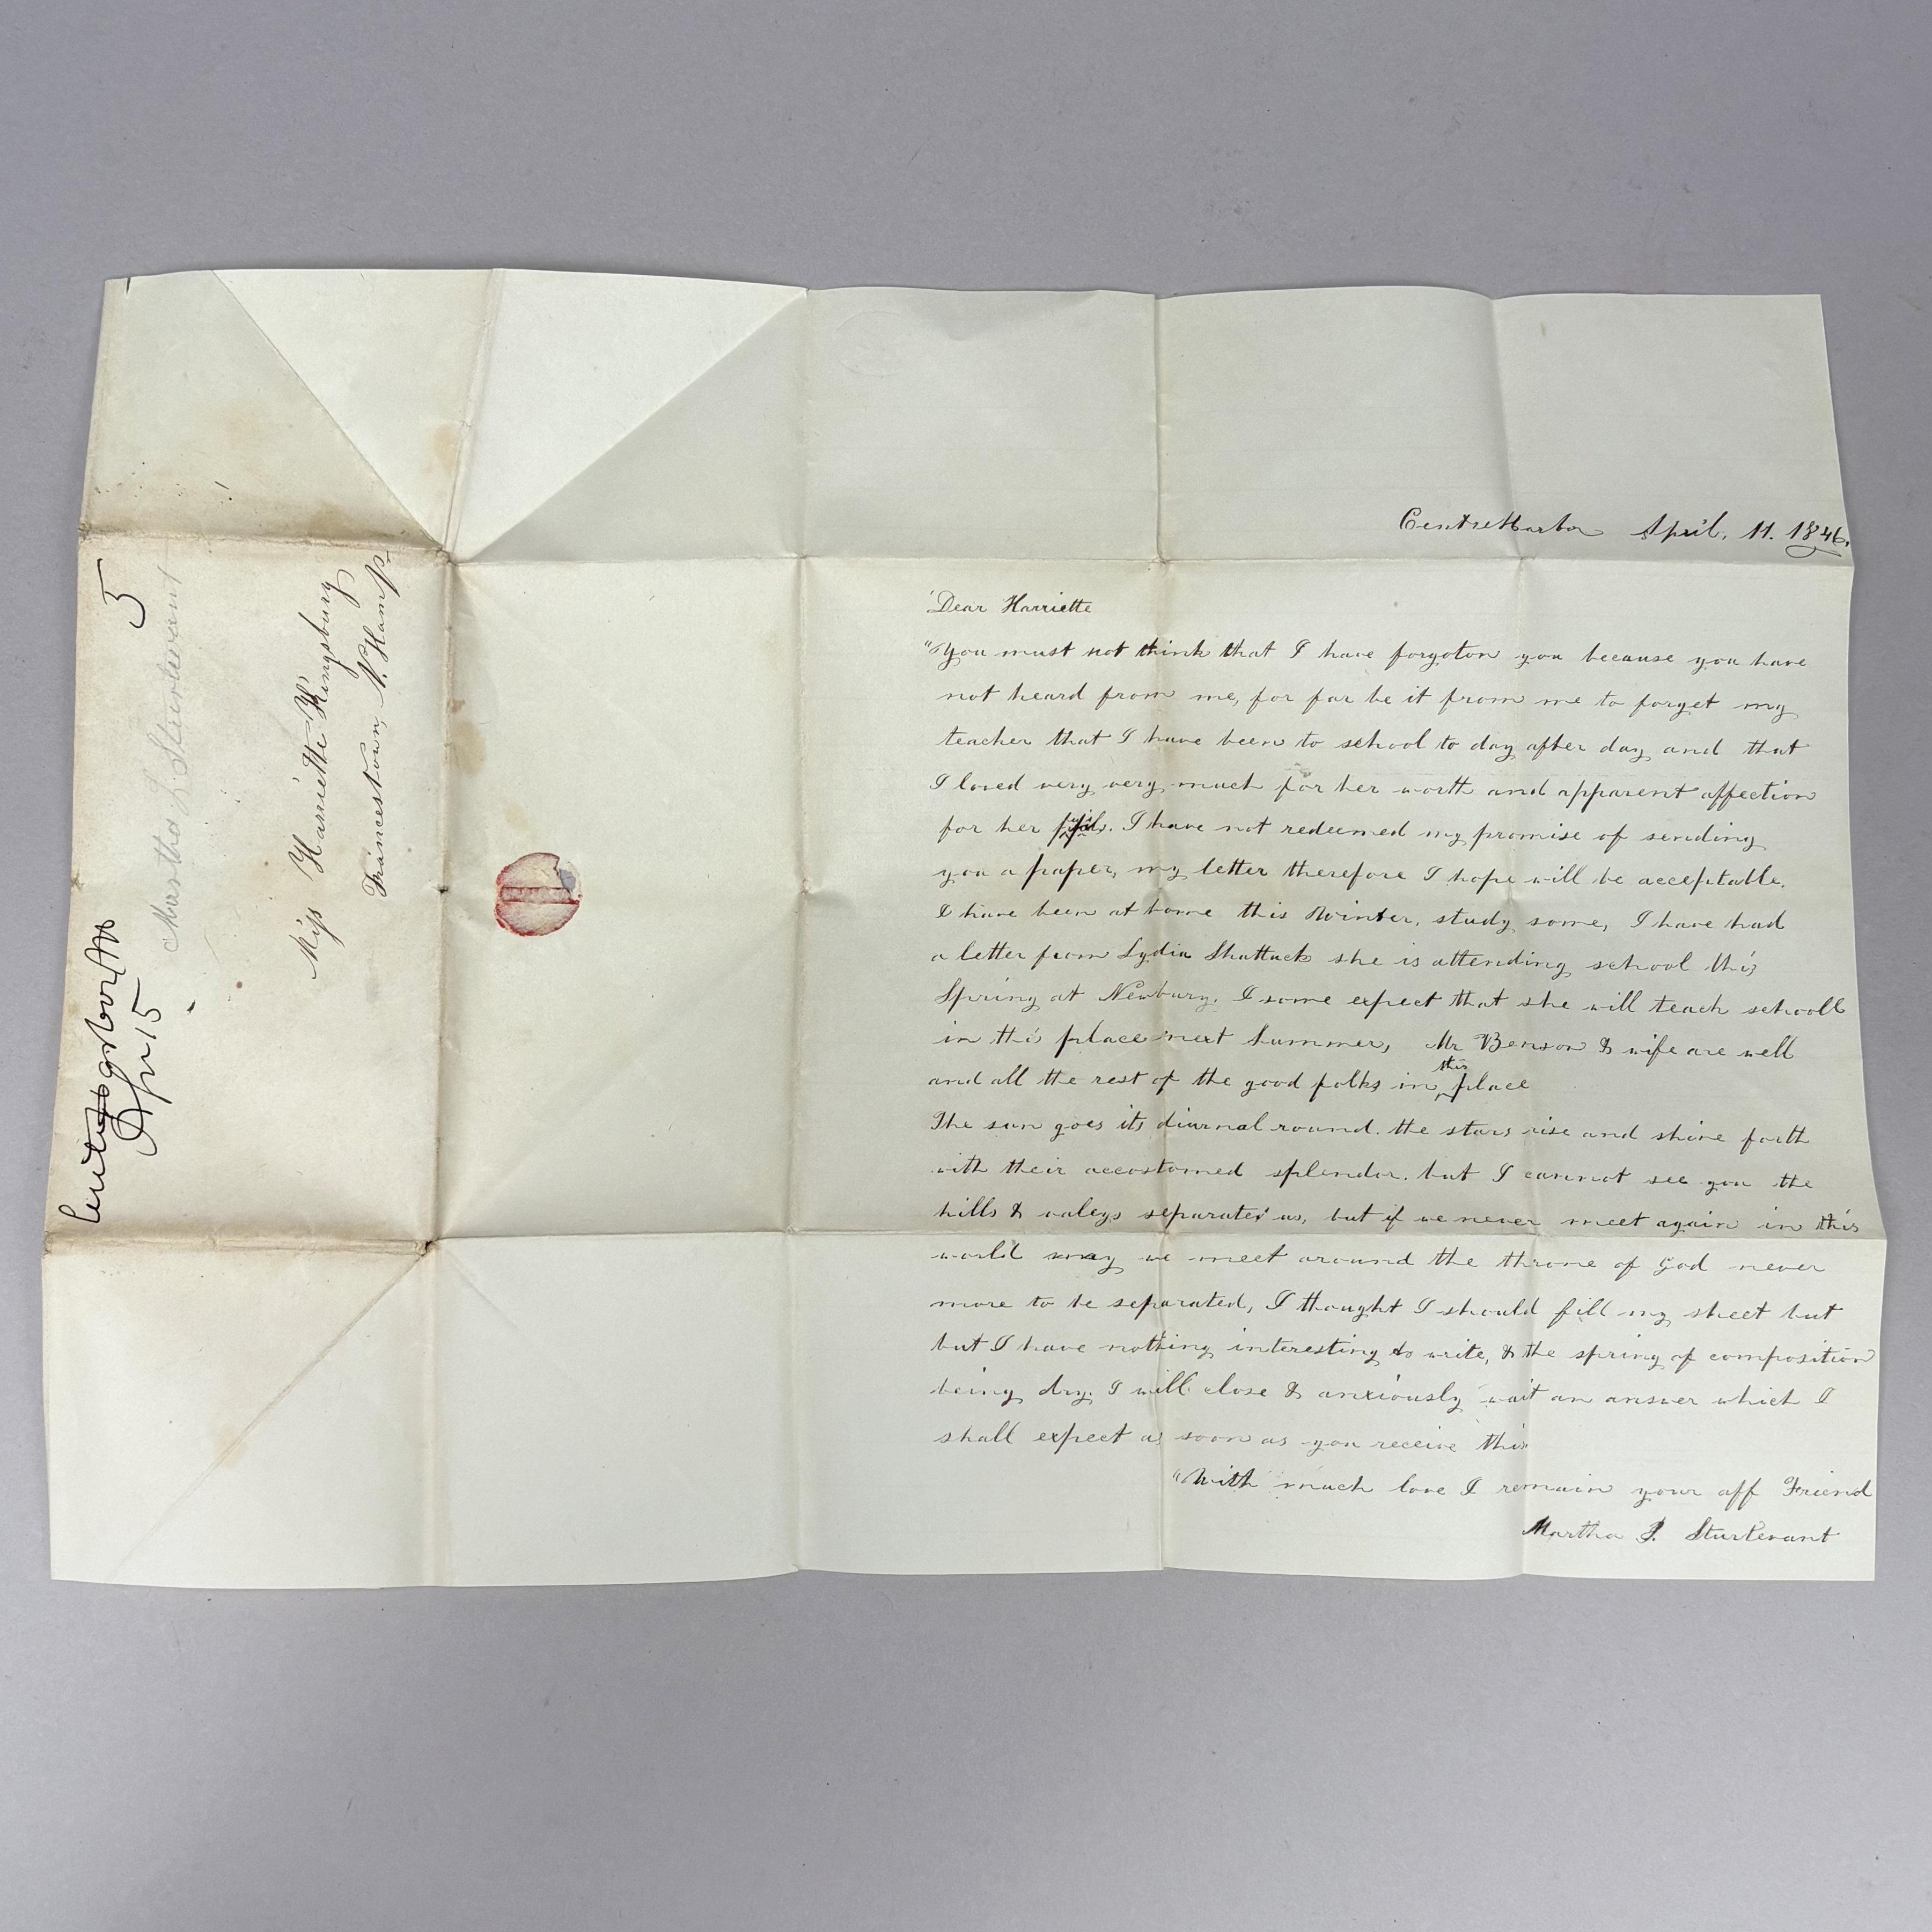 Centre Harbor April, 11. 1846.
Dear Harriette
"You must not think that I have forgoton you because you have
not heard from me, for far be it from me to forget my
teacher that I have been to school to day after day and that
I loved very very much for her worth and apparent affection
for her pupils. I have not redeemed my promise of sending
you a paper, my letter therefore I hope will be acceptable.
I have been at home this Winter, study some, I have had
a letter from Lydia Shattuck she is attending school this
Spring at Newbury. I some expect that she will teach schooll
in this place next Summer, Mr Benson & wife are well
and all the rest of the good folks in this place
The sun goes its diurnal round. the stars rise and shine forth
with their accostomed splendor. but I cannot see you the
hills & valeys separates us, but if we never meet again in this
world may we meet around the throne of God never
more to be separated, I thought I should fill my sheet but
but I have nothing interesting to write, & the spring of composition
being dry. I will close & anxiously wait an answer which I
shall expect as soon as you receive this
"With much love I remain your aff Friend
Martha J. Sturtevant
5
Apr 15
Martha J. Sturtevant
Miss Harriette Kingsbury
Francestown, N. Hamp.